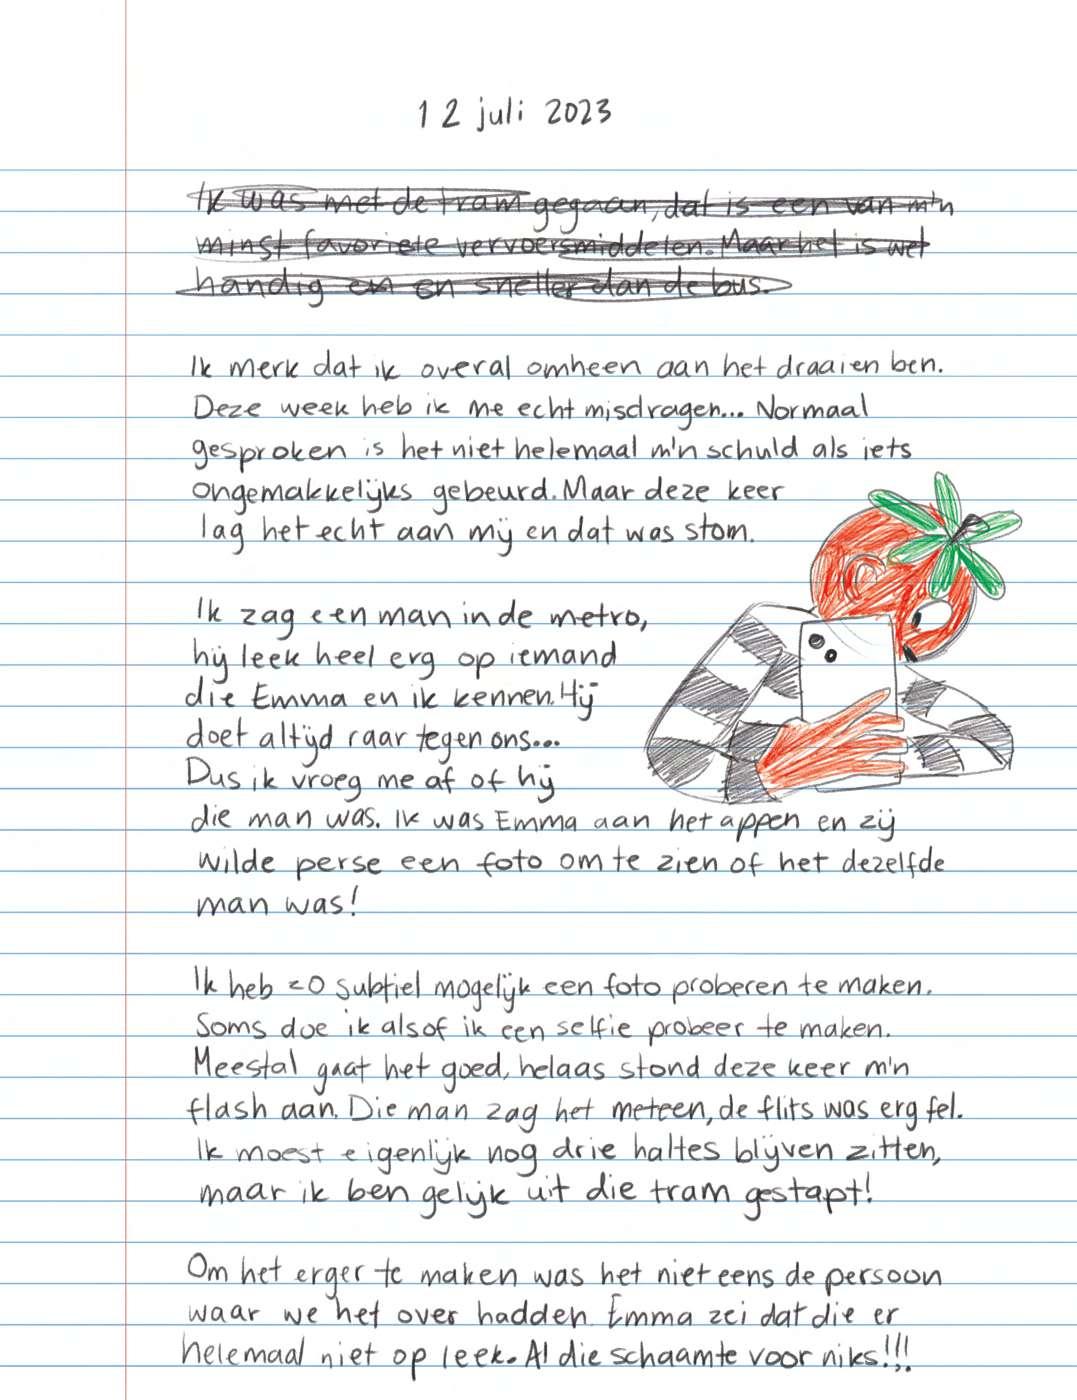 12 juli 2023
Ik was met de tram gegaan, dat is een van m'n
minst favoriete vervoersmiddelen. Maar het is wel
handig en en sneller dan de bus.
Ik merk dat ik overal omheen aan het draaien ben.
Deze week heb ik me echt misdragen... Normaal
gesproken is het niet helemaal m'n schuld als iets
ongemakkelijks gebeurd. Maar deze keer
lag het echt aan mij en dat was stom.
Ik zag een man in de metro,
hij leek heel erg op iemand
die Emma en ik kennen. Hij
doet altijd raar tegen ons...
Dus ik vroeg me af of hij
die man was. Ik was Emma aan het appen en zij
wilde perse een foto om te zien of het dezelfde
man was!
Ik heb zo subtiel mogelijk een foto proberen te maken.
Soms doe ik alsof ik een selfie probeer te maken.
Meestal gaat het goed, helaas stond deze keer m'n
flash aan. Die man zag het meteen, de flits was erg fel.
Ik moest eigenlijk nog drie haltes blijven zitten,
maar ik ben gelijk uit die tram gestapt!
Om het erger te maken was het niet eens de persoon
waar we het over hadden. Emma zei dat die er
helemaal niet op leek. Al die schaamte voor niks!!!